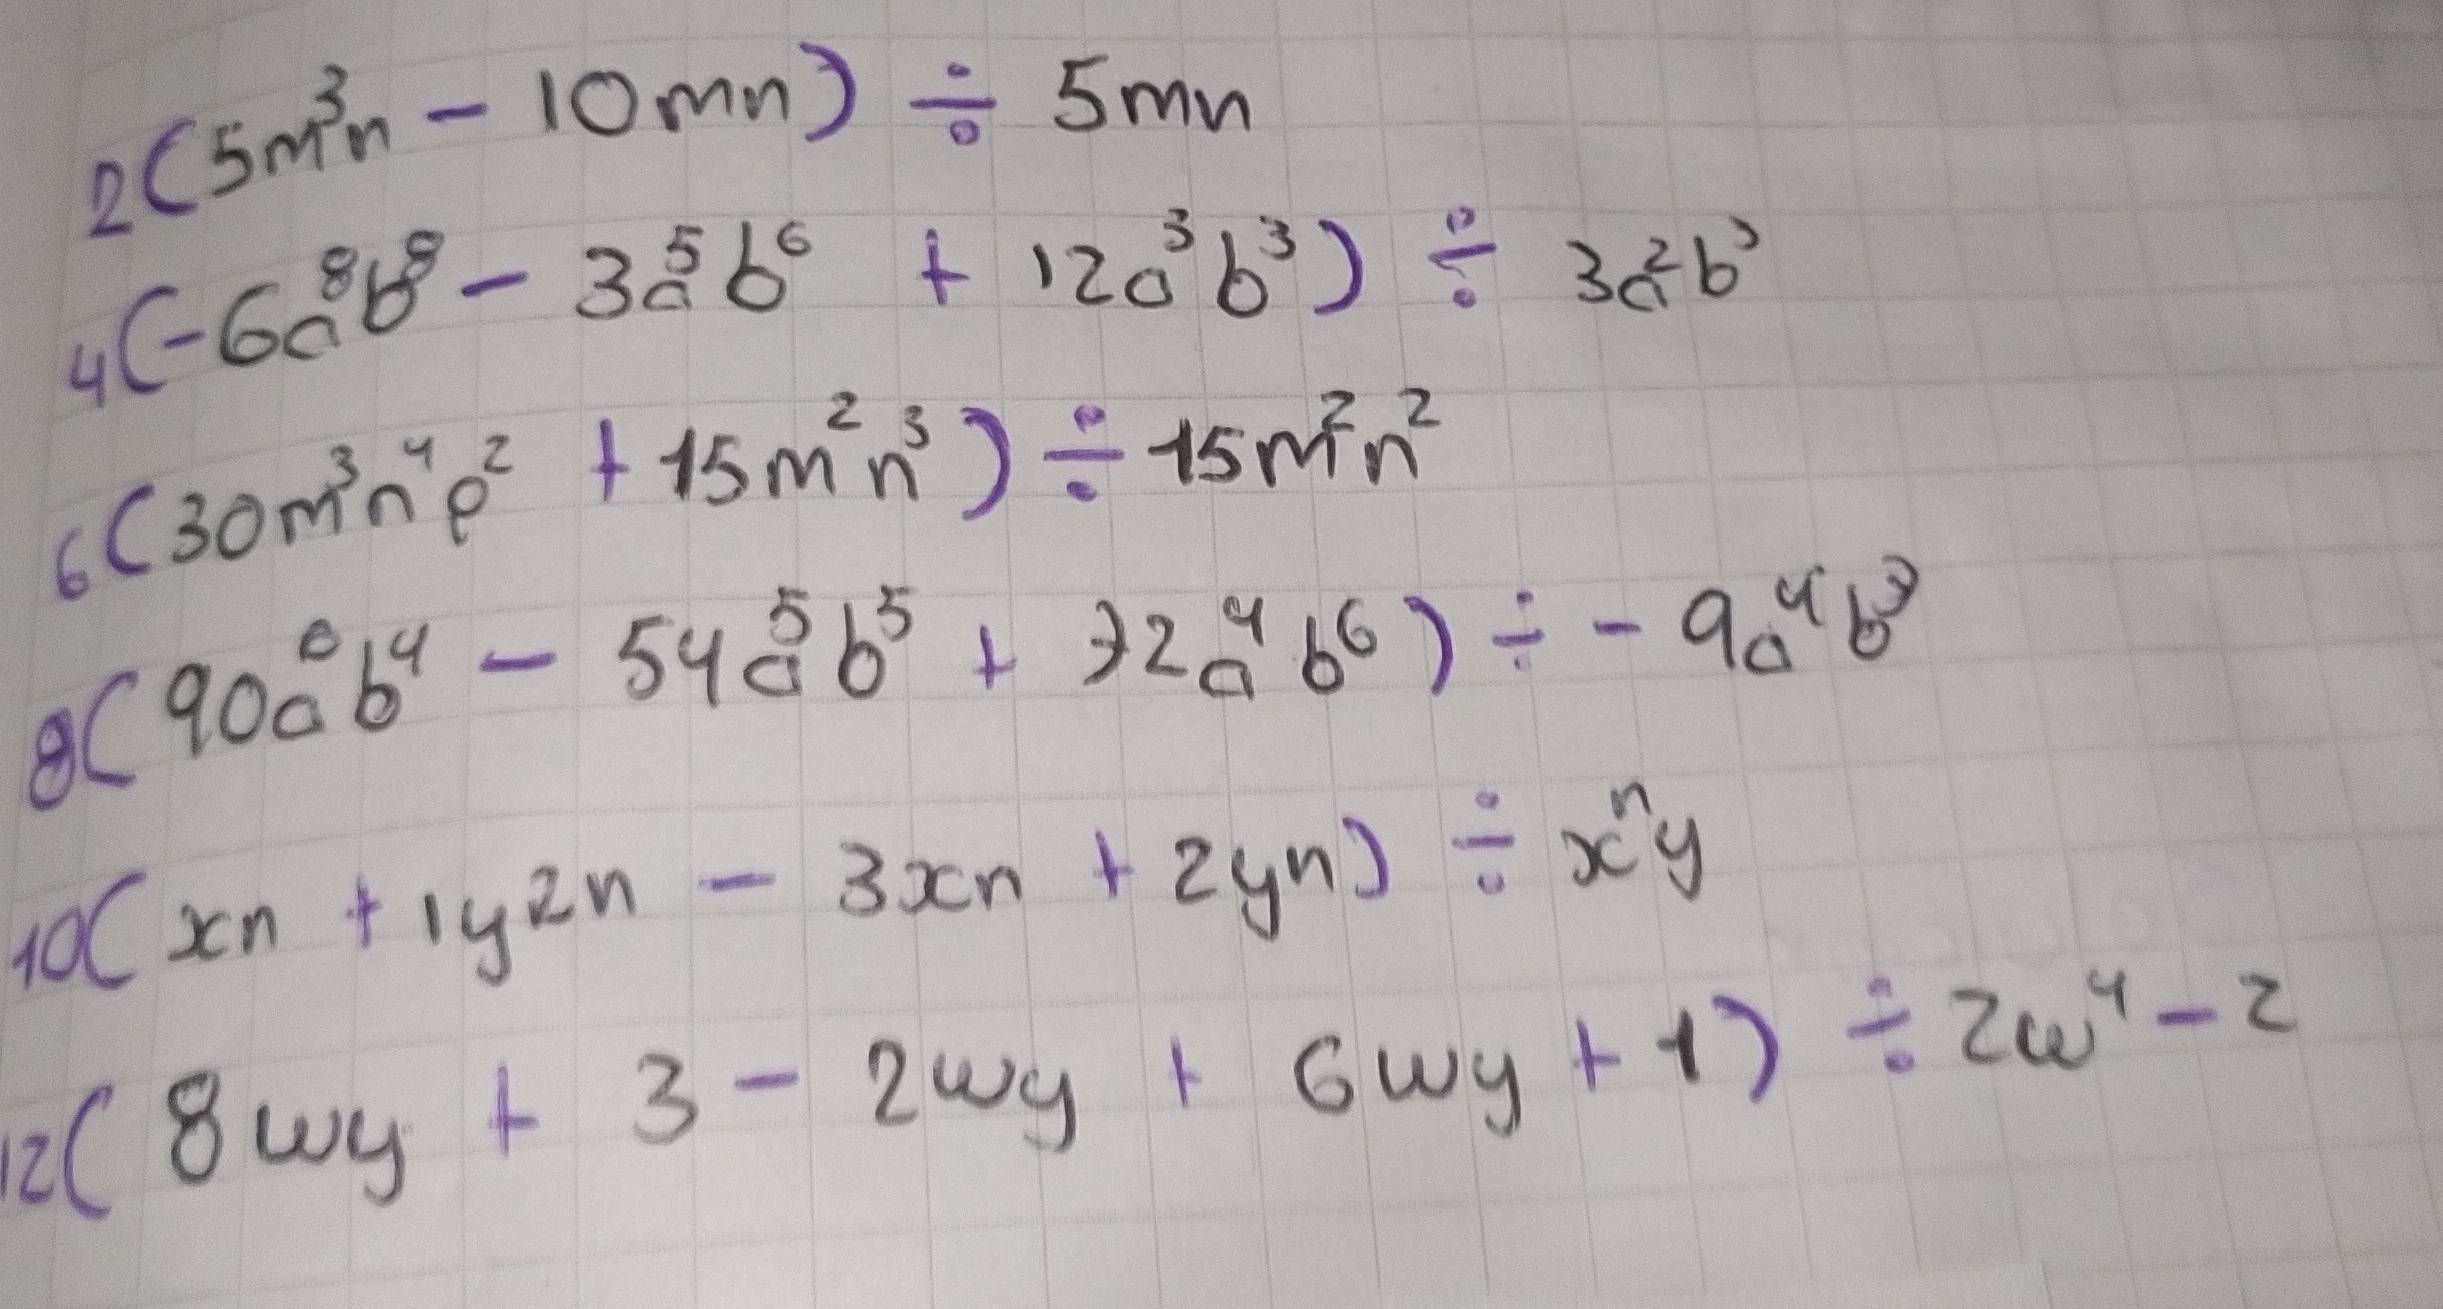 2(5m³n - 10mn) ÷ 5mn
4(-6a⁸b⁸ - 3a⁵b⁶ + 12a³b³) ÷ 3a²b³
6(30m³n⁴p² + 15m²n³) ÷ 15m²n²
8(90a⁶b⁴ - 54a⁵b⁵ + 72a⁴b⁶) ÷ - 9a⁴b³
10(xn + 1y2n - 3xn + 2yn) ÷ xⁿy
12(8wy + 3 - 2wy + 6wy + 1) ÷ 2w⁴ - 2